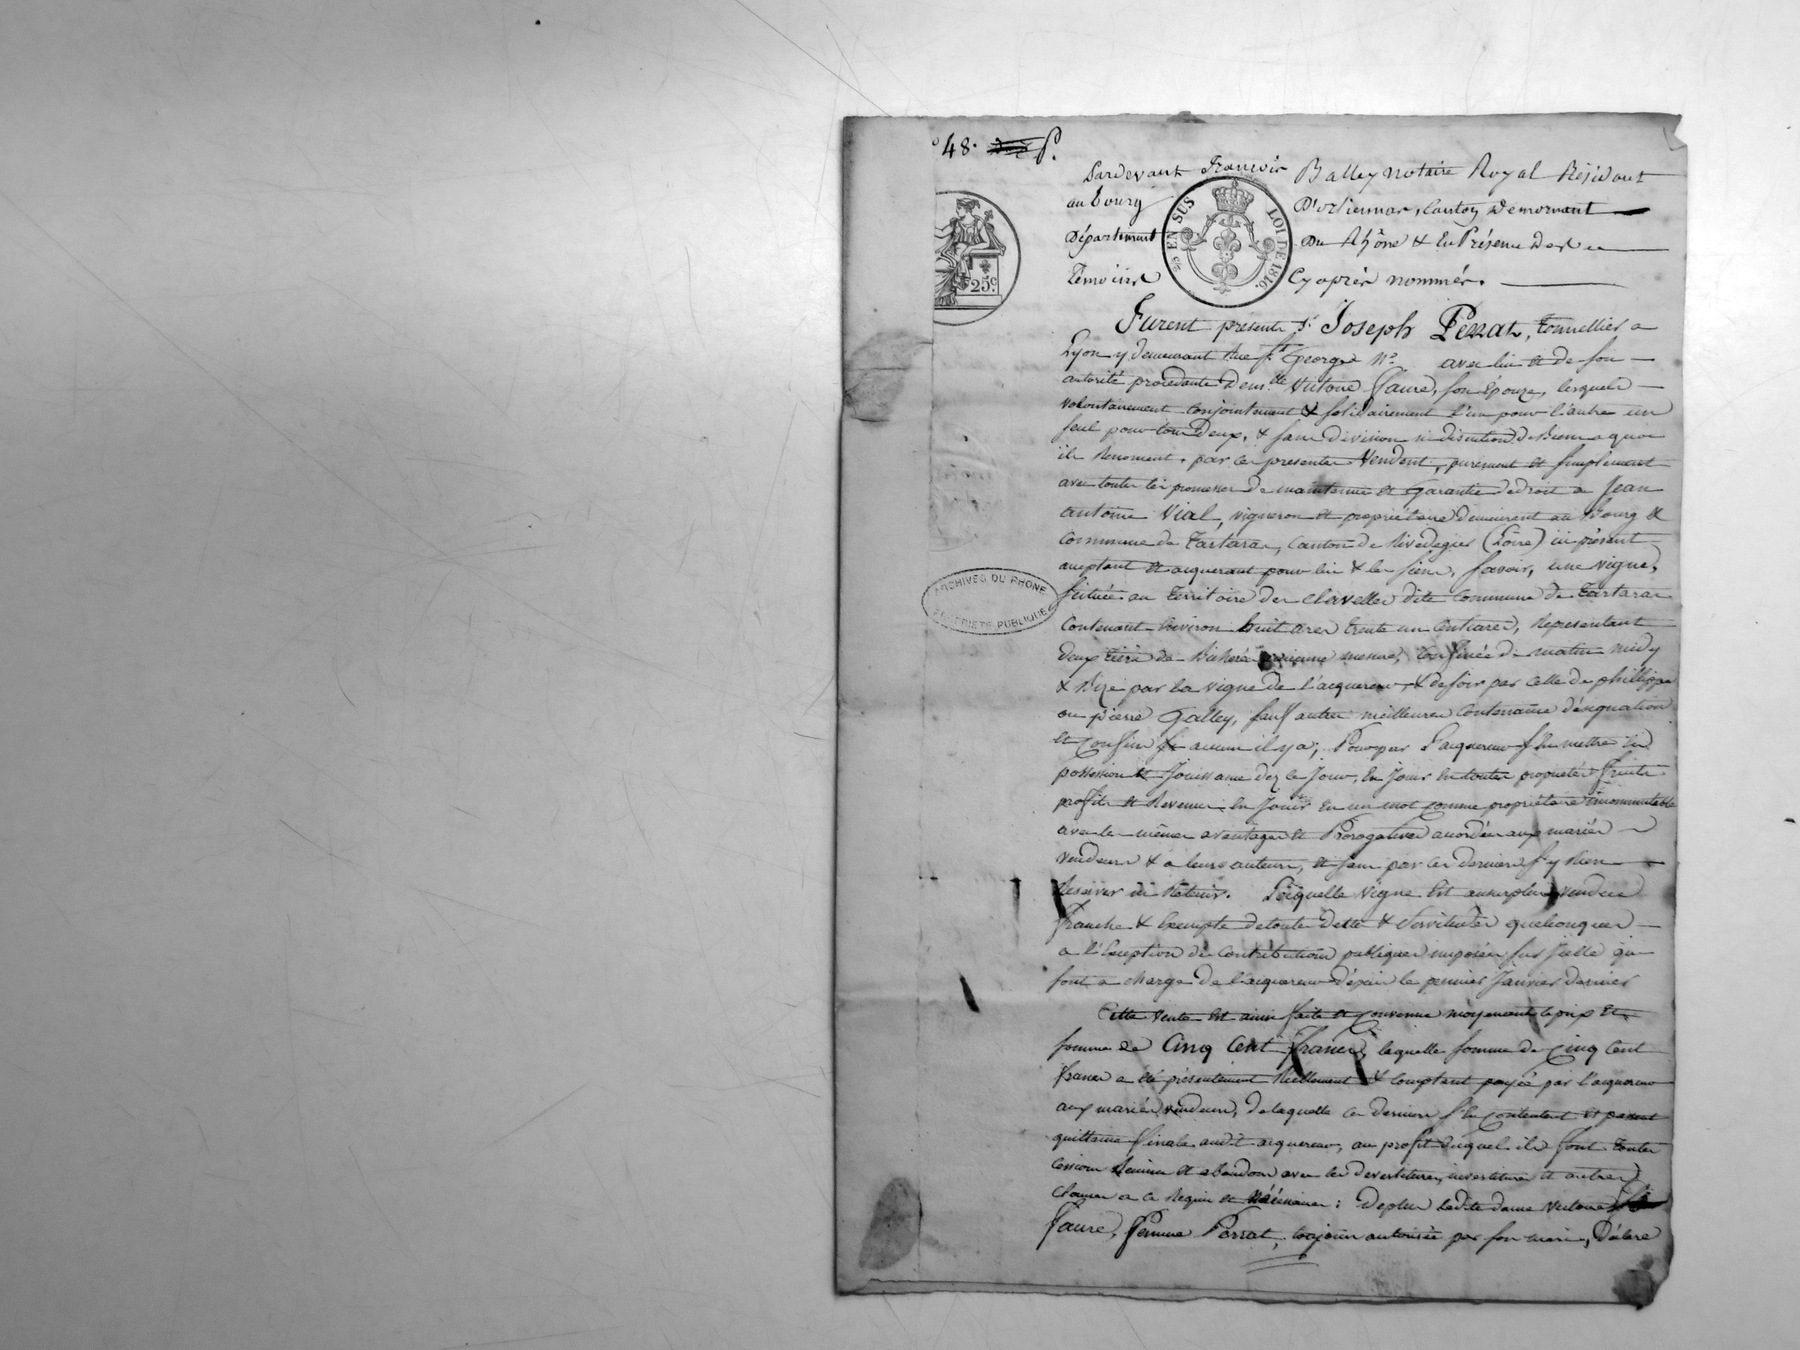 48.
Pardevant François Balley notaire Royal Résidant
au bourg D'orlienas, Canton de mornant
Département Du Rhône & En Présence des
Témoins Cy après nommés.
EN SUS
LOI DE 1816.
25c.
Furent présents Sr. Joseph Perrat, tonnellier a
Lyon y demeurant Rue St George No. avec lui et de son
autorité procedante dem.lle Victoire Faure, son épouze, lesquels
volontairement conjointement & solidairement l'un pour l'autre un
seul pour tous deux, & sans division ni discution de Biens a quoi
ils Renoncent, par ces presentes Vendent, purement et simplement
avec toutes les promesses de maintenue et Garantie de droit a Jean
antoine Vial, vigneron et propriétaire demeurant au Bourg &
Commune de Tartaras, Canton de Rivedegier (Loire) ici présent
aceptant et acquerant pour lui & les siens, Savoir, une vigne,
Située au Territoire des Clavelles dite Commune de Tartaras
Contenant Environ huit ares trente un Centiares, Representant
deux tiers de Bicherée ancienne mesure, Confinée de matin midy
& Bize par la vigne de l'acquereur, & de soir par celle de phillippe
ou pierre Galley, sauf autres meilleures Contenance désignation
et Confins si aucun il y a; Pour par l'acquereur s'en mettre en
possession et Jouissance dez ce Jour, En Jouir En toutes propriétés fruits
profits et Revenus, En Jouir En un mot comme propriétaire incommutable
avec les mêmes avantages et Prorogatives acordés aux mariés
vendeurs & a leurs auteurs, et sans par ces derniers s'y Rien
Reserver ni Retenir. Laquelle vigne Est au surplus vendue
franche & Exempte de toute dette & Servitudes quelconques
a l'Exeption des Contributions publiques imposées sur Icelle qui
sont a charge de l'acquereur dépuis le premier Janvier dernier
Cette vente Est ainsi faite et Convenue moyennant le prix Et
somme de Cinq Cent Francs, laquelle somme de Cinq Cent
francs a été présentement Réellement & Comptant payée par l'acquereur
aux mariés vendeurs, de laquelle ces derniers s'En Contentent et passent
quittance finale audit acquereur, au profit duquel ils font toutes
Cessions demise et abandon avec les devestitures, investitures et autres
Clauses a ce Requis et nécéssaires: de plus ladite dame victoire
Faure, femme Perrat, toujours autorisée par son mari, Déclare
ARCHIVES DU RHONE
PROPRIETE PUBLIQUE